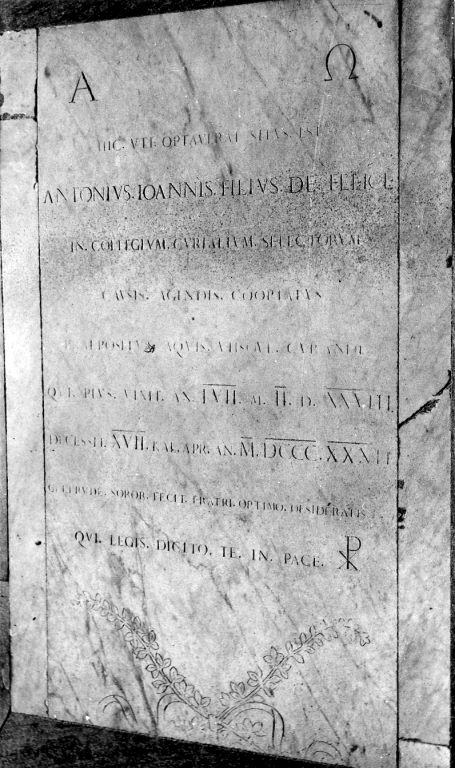 Α Ω
HIC. VTI. OPTAVERAT. SITVS. EST
ANTONIVS. IOANNIS. FILIVS. DE. FELICI.
IN. COLLEGIVM. CVRIALIVM. SELECTORVM
CAVSIS. AGENDIS. COOPTATVS
AQVIS. VIISQVE.
QVI. PIVS. VIXIT. AN. LVII. M. II. D. XXVIII.
DECESSIT. XVII. KAL. APR. AN. M. DCCC.
SOROR. FECIT. FRATRI. OPTIMO.
QVI. LEGIS. DICITO. TE. IN. PACE. ☧